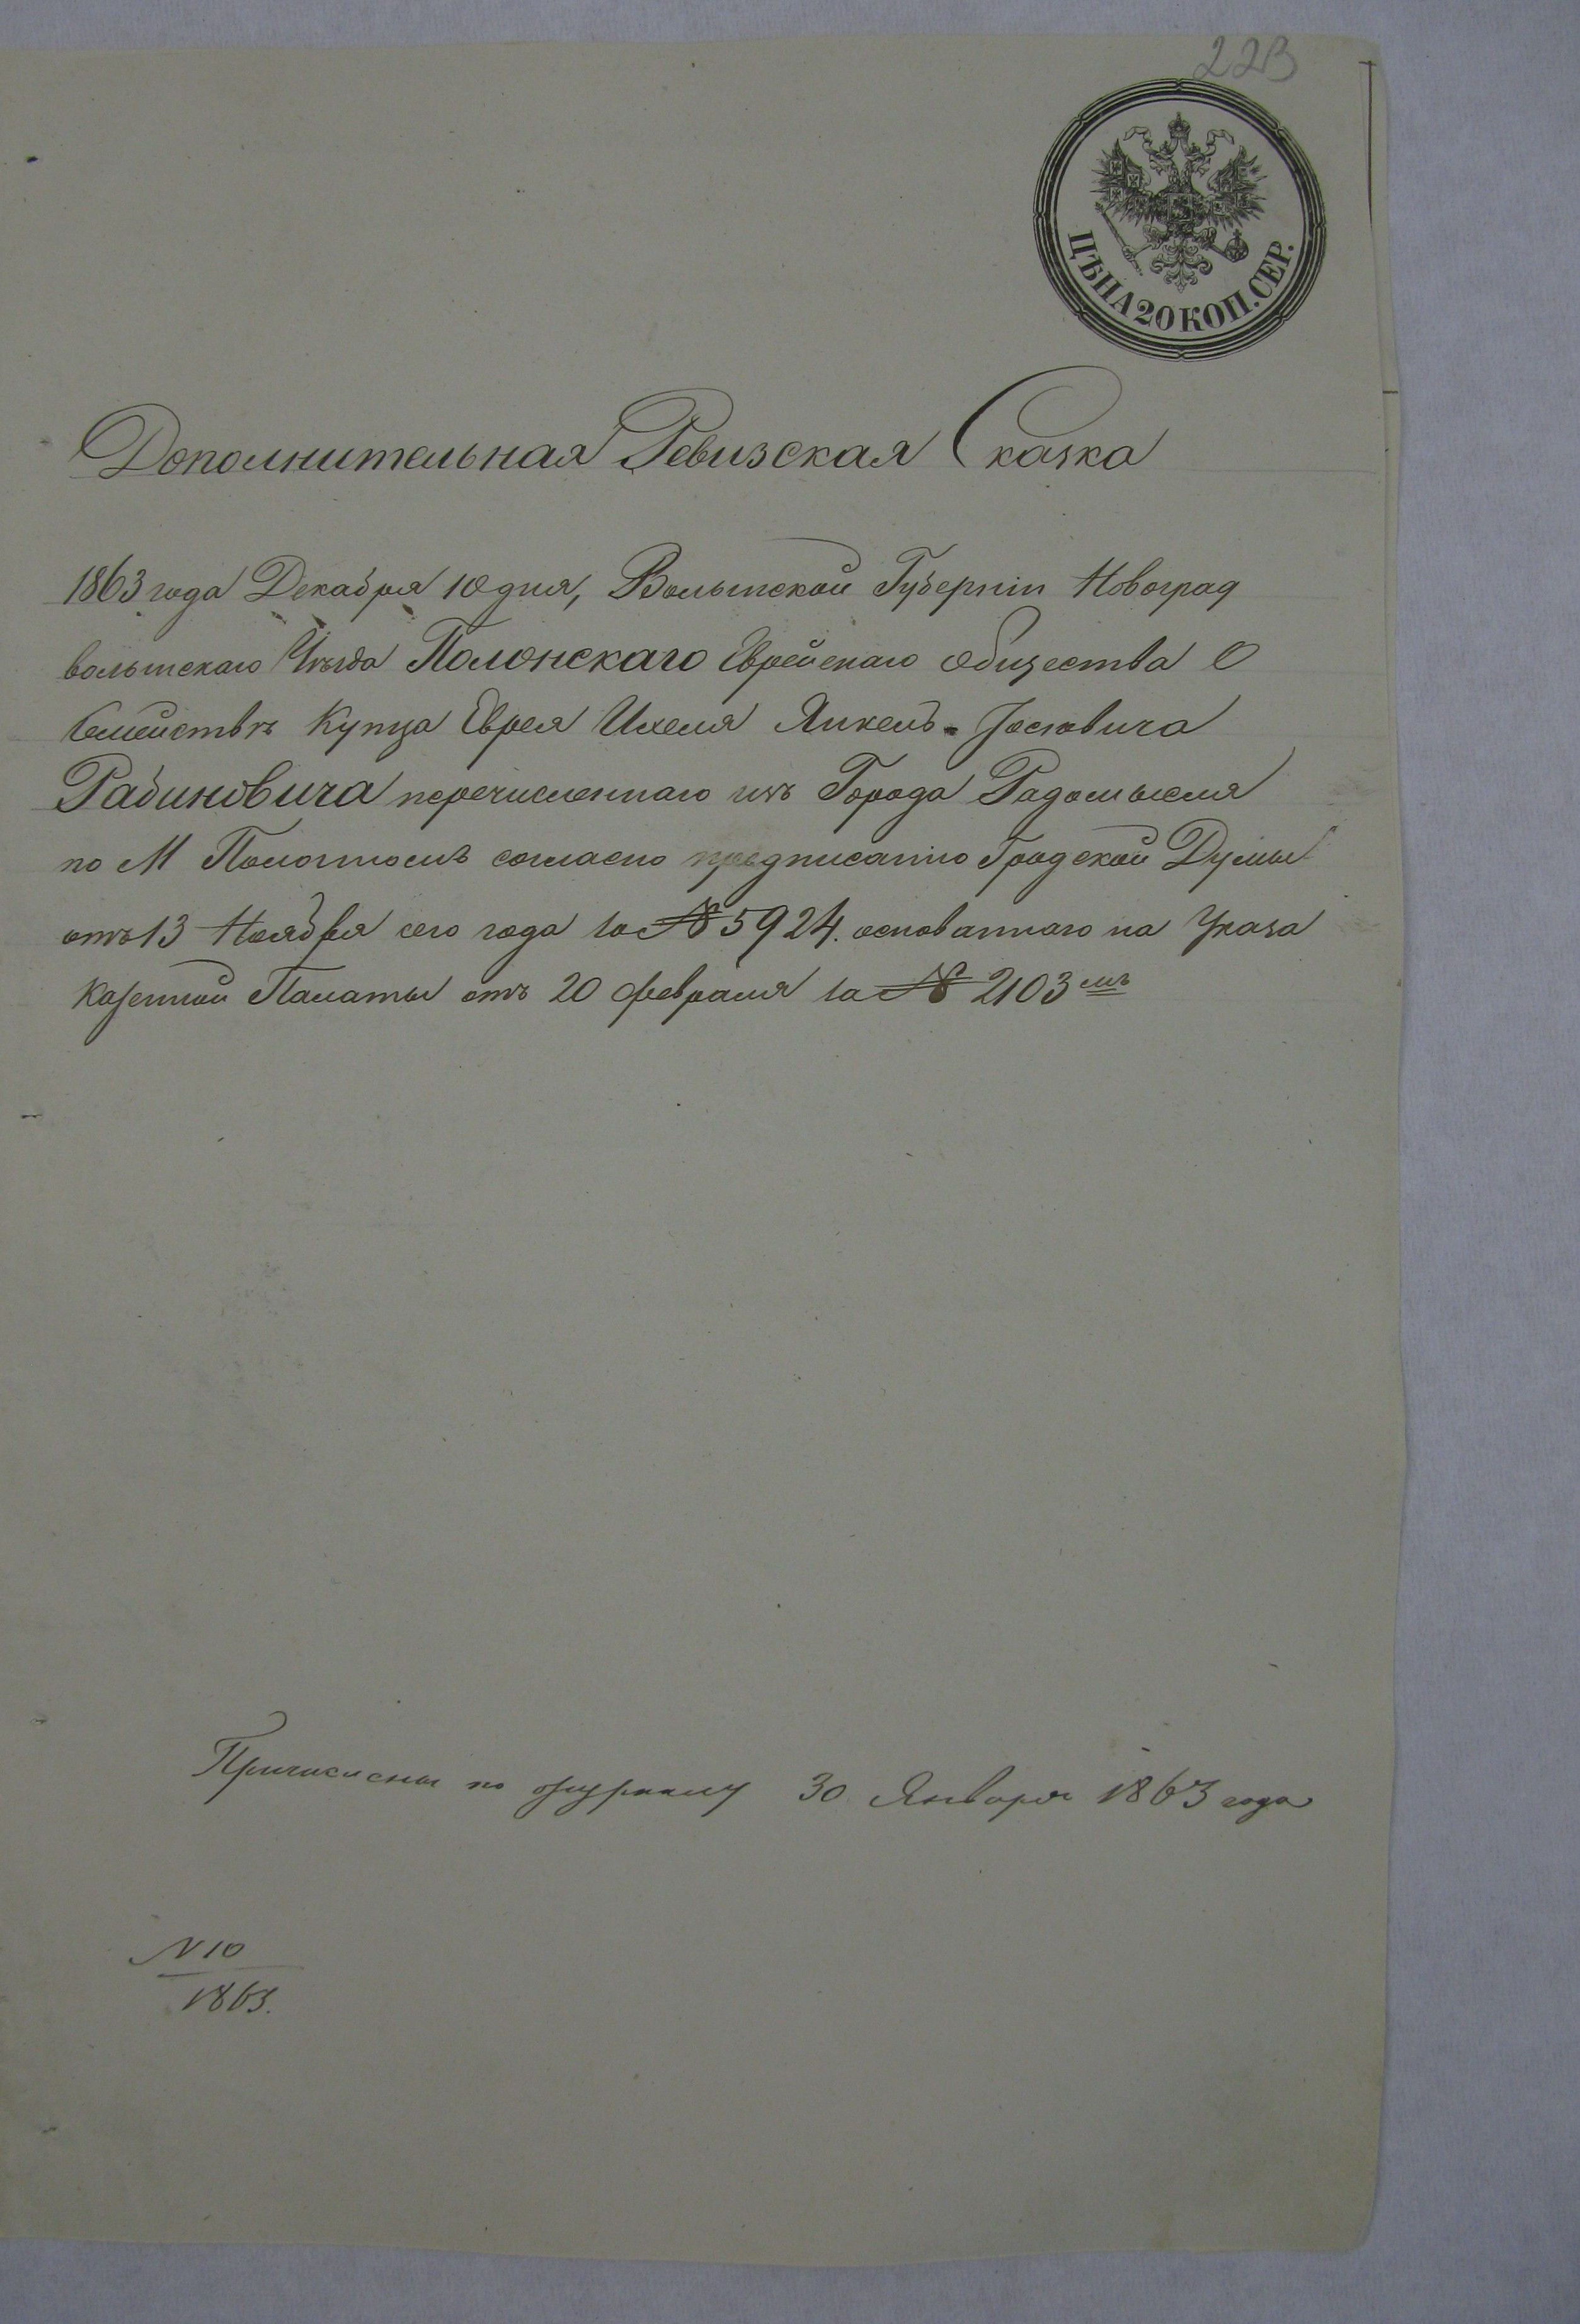 223
ЦѢНА 20 КОП. СЕР.
Дополнительная Ревизская Сказка
1863 года Декабря 10 дня, Волынской Губерніи Новоград
волынскаго Уѣзда Полонскаго Еврейскаго общества О
семействѣ Купца Еврея Ихеля Янкель-Іосіовича
Рабиновича перечисленнаго изъ Города Радомысля
по М Полонномъ согласно предписанію Градской Думы
отъ 13 Ноября сего года за № 5924. основаннаго на Указа
Казенной Палаты отъ 20 февраля за № 2103 мъ
Причислены по журналу 30 Января 1863 года
N 10
1863.